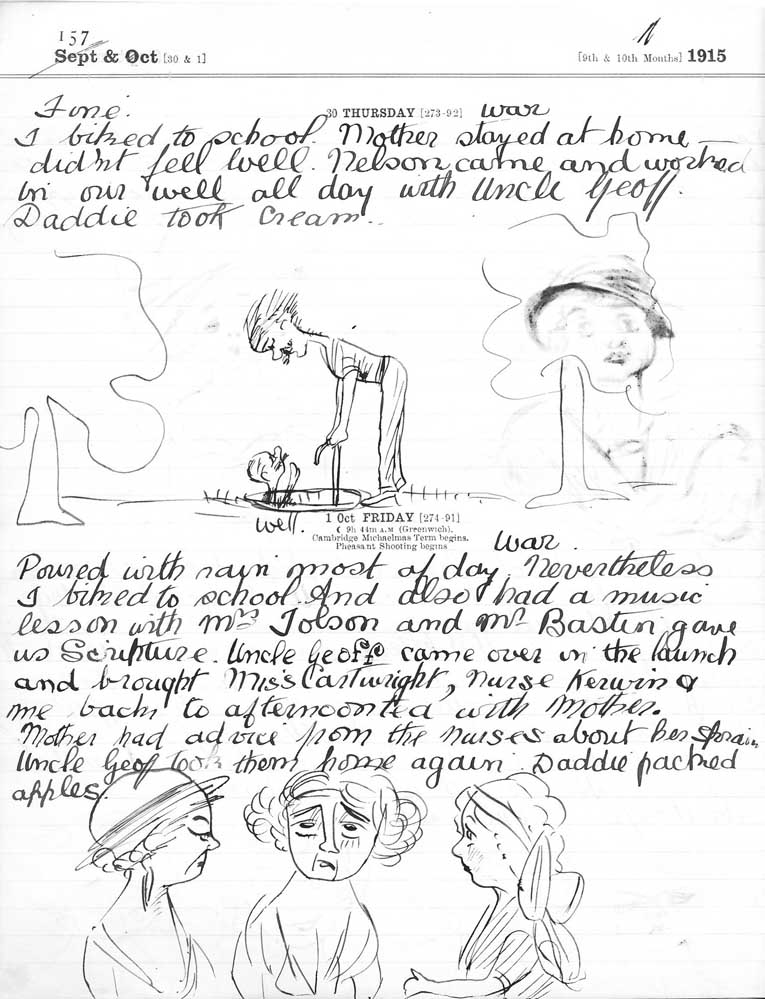 157
Sept & Oct [30 & 1] [9th & 10th Months] 1915
Fine. 30 THURSDAY [273-92] war
I biked to school. Mother stayed at home –
didn't fell well. Nelson came and worked
in our well all day with Uncle Geoff.
Daddie took cream.
well.
1 Oct FRIDAY [274-91]
☾ 9h 44m A.M (Greenwich).
Cambridge Michaelmas Term begins.
Pheasant Shooting begins
war.
Poured with rain most of day. Nevertheless
I biked to school. And also had a music
lesson with Mrs Tolson and Mr Bastin gave
us Scripture. Uncle Geoff came over in the launch
and brought Miss Cartwright, Nurse Kerwin &
me back to afternoon tea with Mother.
Mother had advice from the nurses about her sprain
Uncle Geof took them home again. Daddie packed
apples.